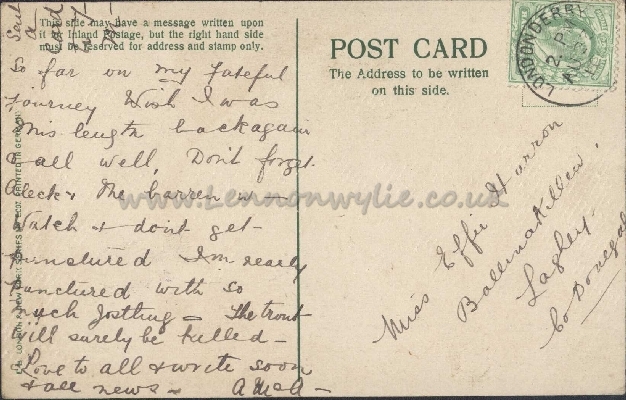 Sent
a
card
to
my
This side may have a message written upon
it for Inland Postage, but the right hand side
must be reserved for address and stamp only.
So far on my fateful
journey Wish I was
this length back again
& all well, Don't forget
Aleck & the barren
Watch & dont get
Punctured I'm nearly
Punctured with so
much Jostling - The trout
Will surely be killed -
Love to all & write soon
& all news -
POST CARD
The Address to be written
on this side.
LONDONDERRY
2
Miss Effie Harron
Ballinakillew
Lagley
Co Donegal
PRINTED IN GERMANY
www.Lennonwylie.co.uk